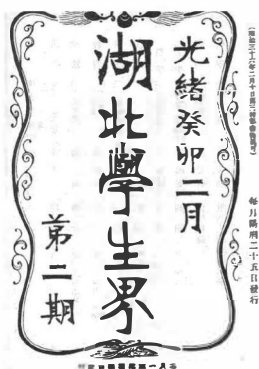 光緒癸卯二月
湖北學生界
第二期
每月陽曆二十五日發行